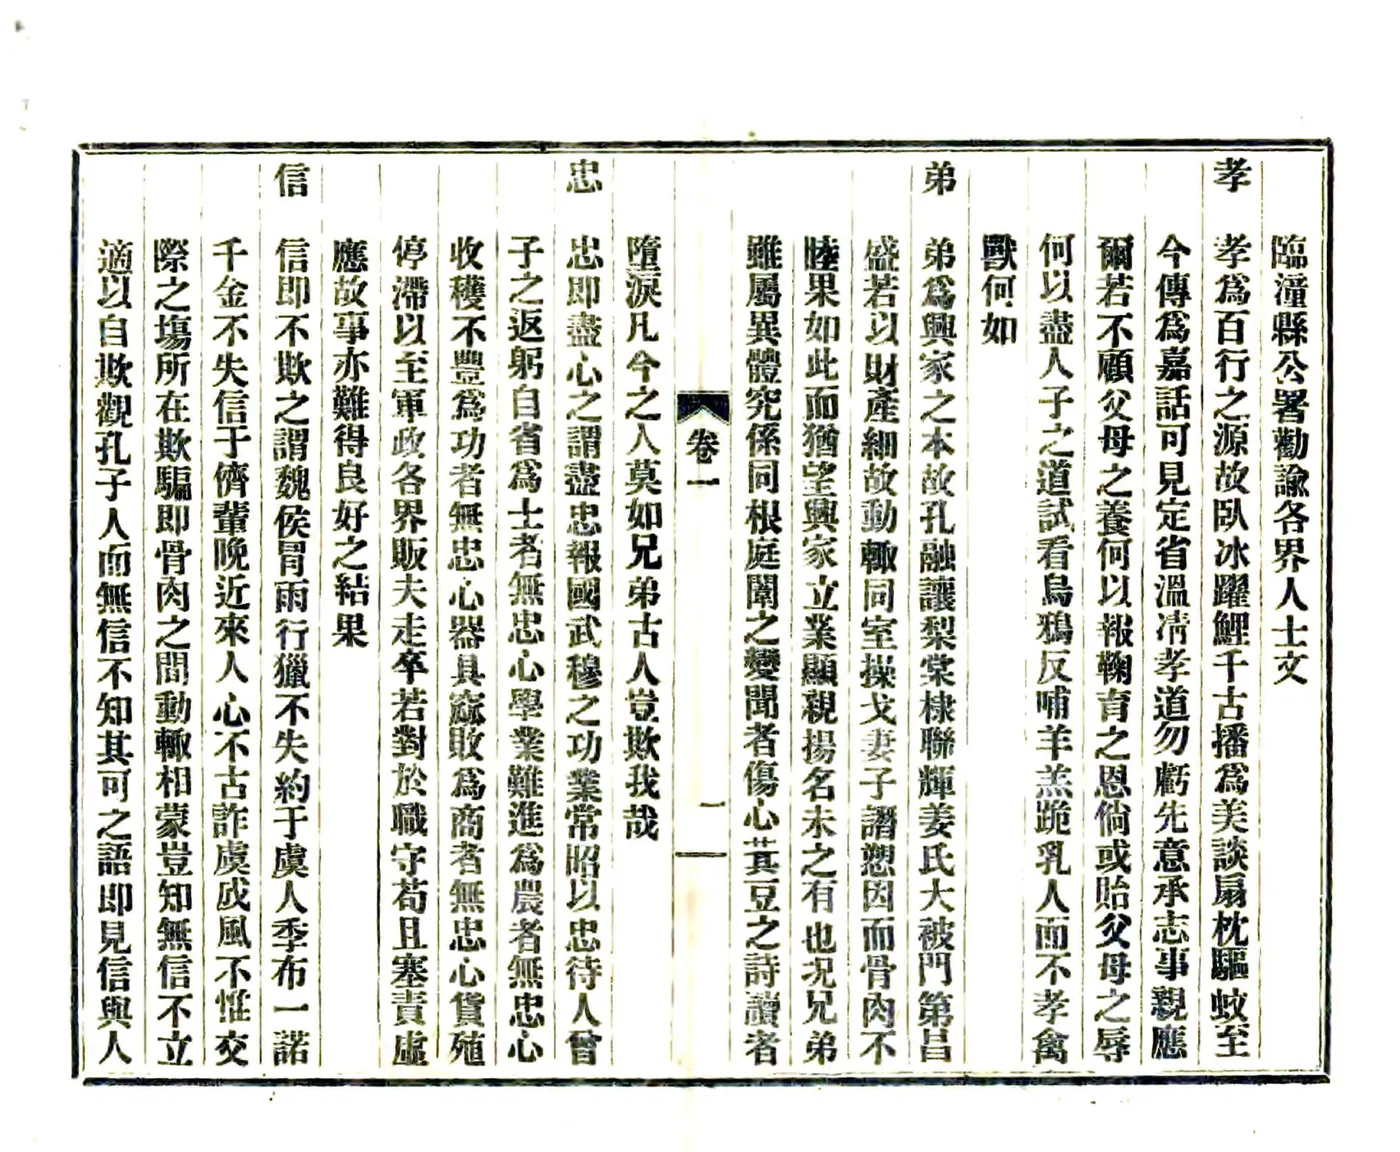 臨潼縣公署勸諭各界人士文
孝　孝爲百行之源故臥冰躍鯉千古播爲美談扇枕驅蚊至
今傳爲嘉話可見定省溫凊孝道勿虧先意承志事親應
爾若不顧父母之養何以報鞠育之恩倘或貽父母之辱
何以盡人子之道試看烏鴉反哺羊羔跪乳人而不孝禽
獸何如
弟　弟爲興家之本故孔融讓梨棠棣聯輝姜氏大被門第昌
盛若以財產細故動輙同室操戈妻子譖愬因而骨肉不
睦果如此而猶望興家立業顯親揚名未之有也况兄弟
雖屬異體究係同根庭闈之變聞者傷心萁豆之詩讀者
卷一
二
墮淚凡今之人莫如兄弟古人豈欺我哉
忠　忠即盡心之謂盡忠報國武穆之功業常昭以忠待人曾
子之返躬自省爲士者無忠心學業難進爲農者無忠心
收穫不豐爲功者無忠心器具窳敗爲商者無忠心貨殖
停滯以至軍政各界販夫走卒若對於職守苟且塞責虛
應故事亦難得良好之結果
信　信即不欺之謂魏侯冒雨行獵不失約于虞人季布一諾
千金不失信于儕輩晚近來人心不古詐虞成風不惟交
際之塲所在欺騙即骨肉之間動輙相蒙豈知無信不立
適以自欺觀孔子人而無信不知其可之語即見信與人